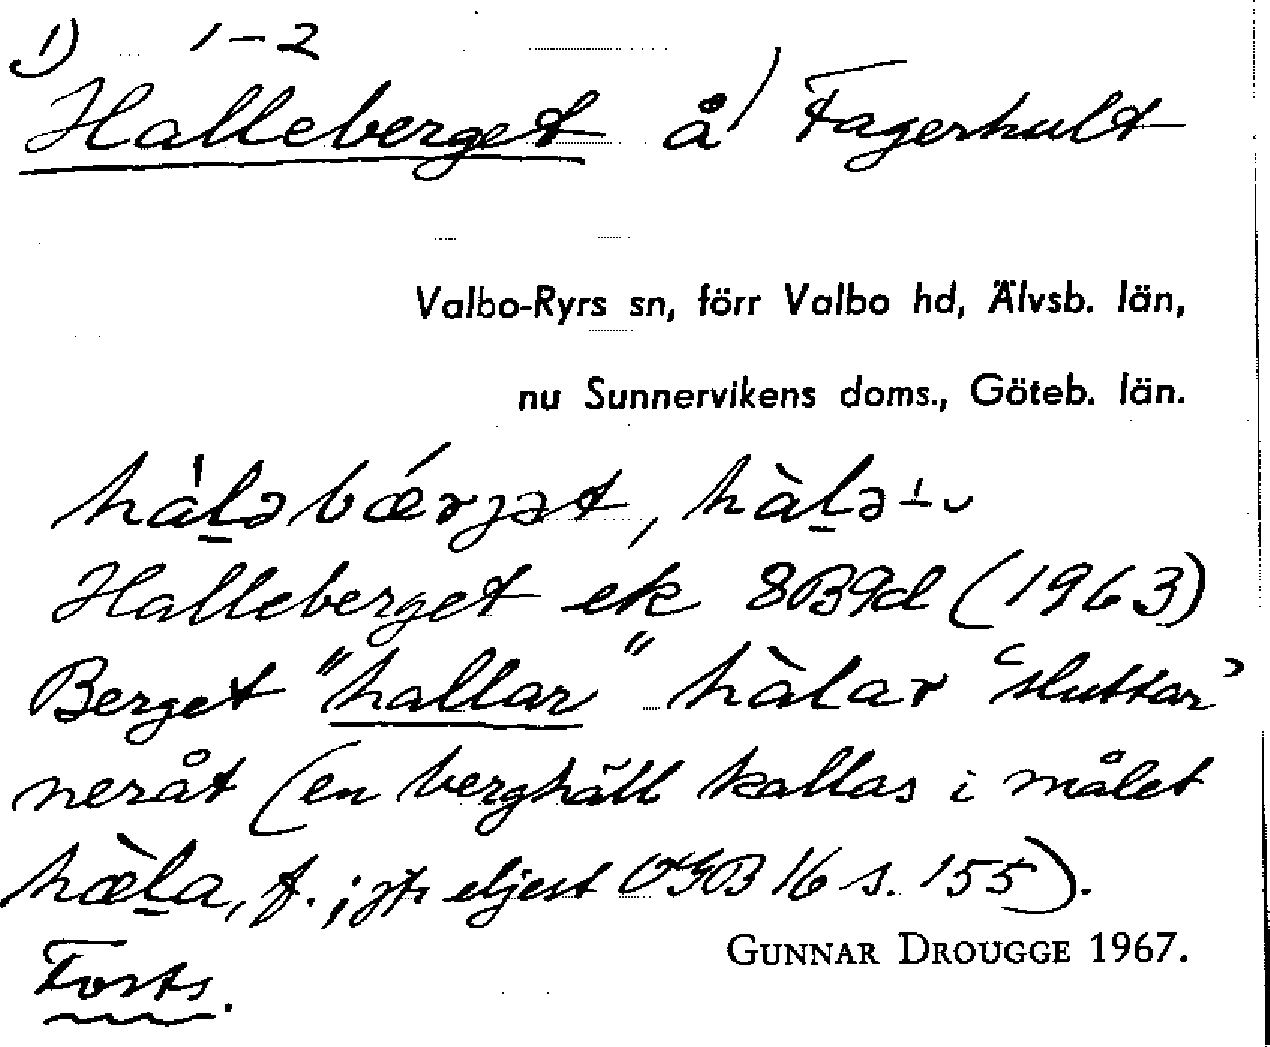 1) 1-2
Halleberget å/ Fagerhult
Valbo-Ryrs sn, förr Valbo hd, Älvsb. län,
nu Sunnervikens doms., Göteb. län.
hàl̠əbǽrjət, hàl̠ə-́ᴗ
Halleberget ek 8B9d (1963)
Berget "hallar" hàlar 'sluttar'
neråt (en berghäll kallas i målet
hæ̀l̠a, f.; jfr eljest OGB 16 s. 155).
GUNNAR DROUGGE 1967.
Forts.